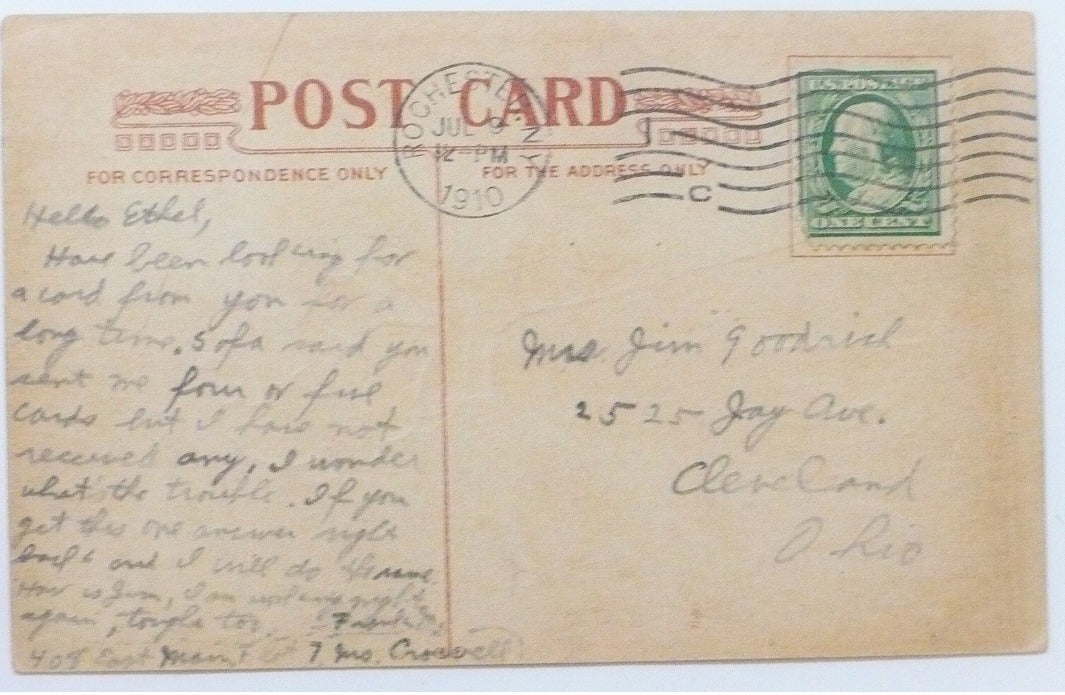 POST CARD
ROCHESTER N.Y.
JUL 9
12-PM
1910
C
U.S. POSTAGE
ONE CENT
FOR CORRESPONDENCE ONLY
FOR THE ADDRESS ONLY
Hello Ethel,
Have been looking for
a card from you for a
long time. Sofa said you
sent me four or five
cards but I have not
received any. I wonder
what's the trouble. If you
get this one answer right
back and I will do the same.
How is Jim, I am working nights
again, tough too.
408 East Main
Mrs. Jim Goodrich
2525 Jay Ave.
Cleveland
Ohio